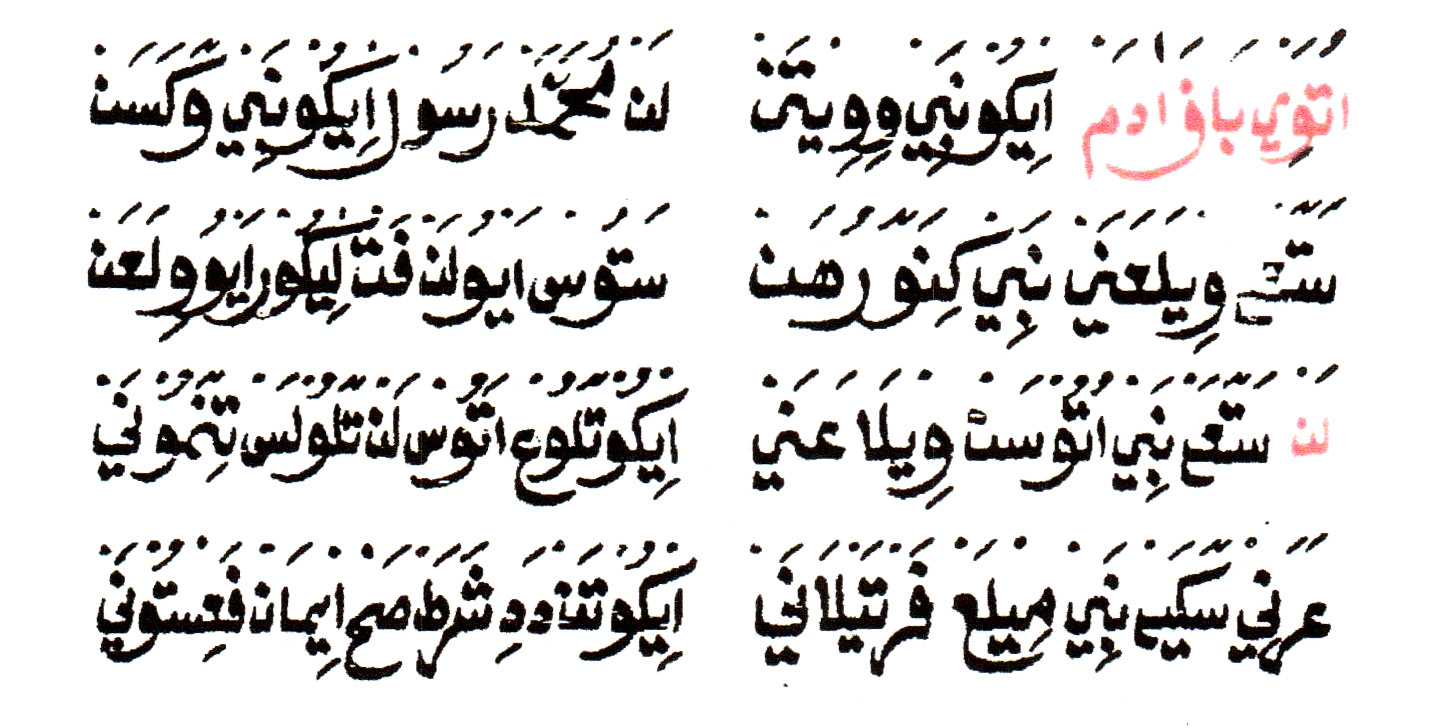 اتوي بافا ادم اِيكو نَبِي وِوِيتَن لن محمّد رسول اِيكو نَبِي وكسن
ستعه ويلعني نبي كِنَورهن ستوس ايوو لن فَتْ لِيكور ايوو وِلَعَن
لن ستعه نَبِي اتوست وِيلاعني اِيكو تلوع اتوس لن تلولس تِنموني
عرني سكيه نبي ميلع فرتيلاني اِيكو تن دَدِ شرط صح اِيمان فعستوني